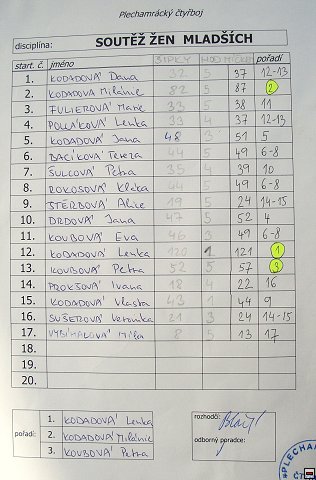 Plechamrácký čtyřboj
disciplína: SOUTĚŽ ŽEN MLADŠÍCH
start. č. jméno ŠIPKY HOD MÍČKEM pořadí
1. KODADOVÁ Dana 32 5 37 12-13
2. KODADOVÁ Milánie 82 5 87 2
3. FULIEROVÁ Marie 33 5 38 11
4. POLLÁKOVÁ Lenka 33 4 37 12-13
5. KODADOVÁ Jana 48 3 51 5
6. BACÍKOVÁ Tereza 44 5 49 6-8
7. ŠULCOVÁ Petra 35 4 39 10
8. ROKOSOVÁ 44 5 49 6-8
9. ŠTĚRBOVÁ Alice 19 5 24 14-15
10. DRDOVÁ Jana 47 5 52 4
11. KOUBOVÁ Eva 46 3 49 6-8
12. KODADOVÁ Lenka 120 1 121 1
13. KOUBOVÁ Petra 52 5 57 3
14. PROKŠOVÁ Ivana 18 4 22 16
15. KODADOVÁ Vlasta 43 1 44 9
16. SUŠEROVÁ Veronika 21 3 24 14-15
17. VYBÍHALOVÁ Míla 8 5 13 17
18.
19.
20.
pořadí:
1. KODADOVÁ Lenka
2. KODADOVÁ Milánie
3. KOUBOVÁ Petra
rozhodčí:
odborný poradce:
PLECHAM